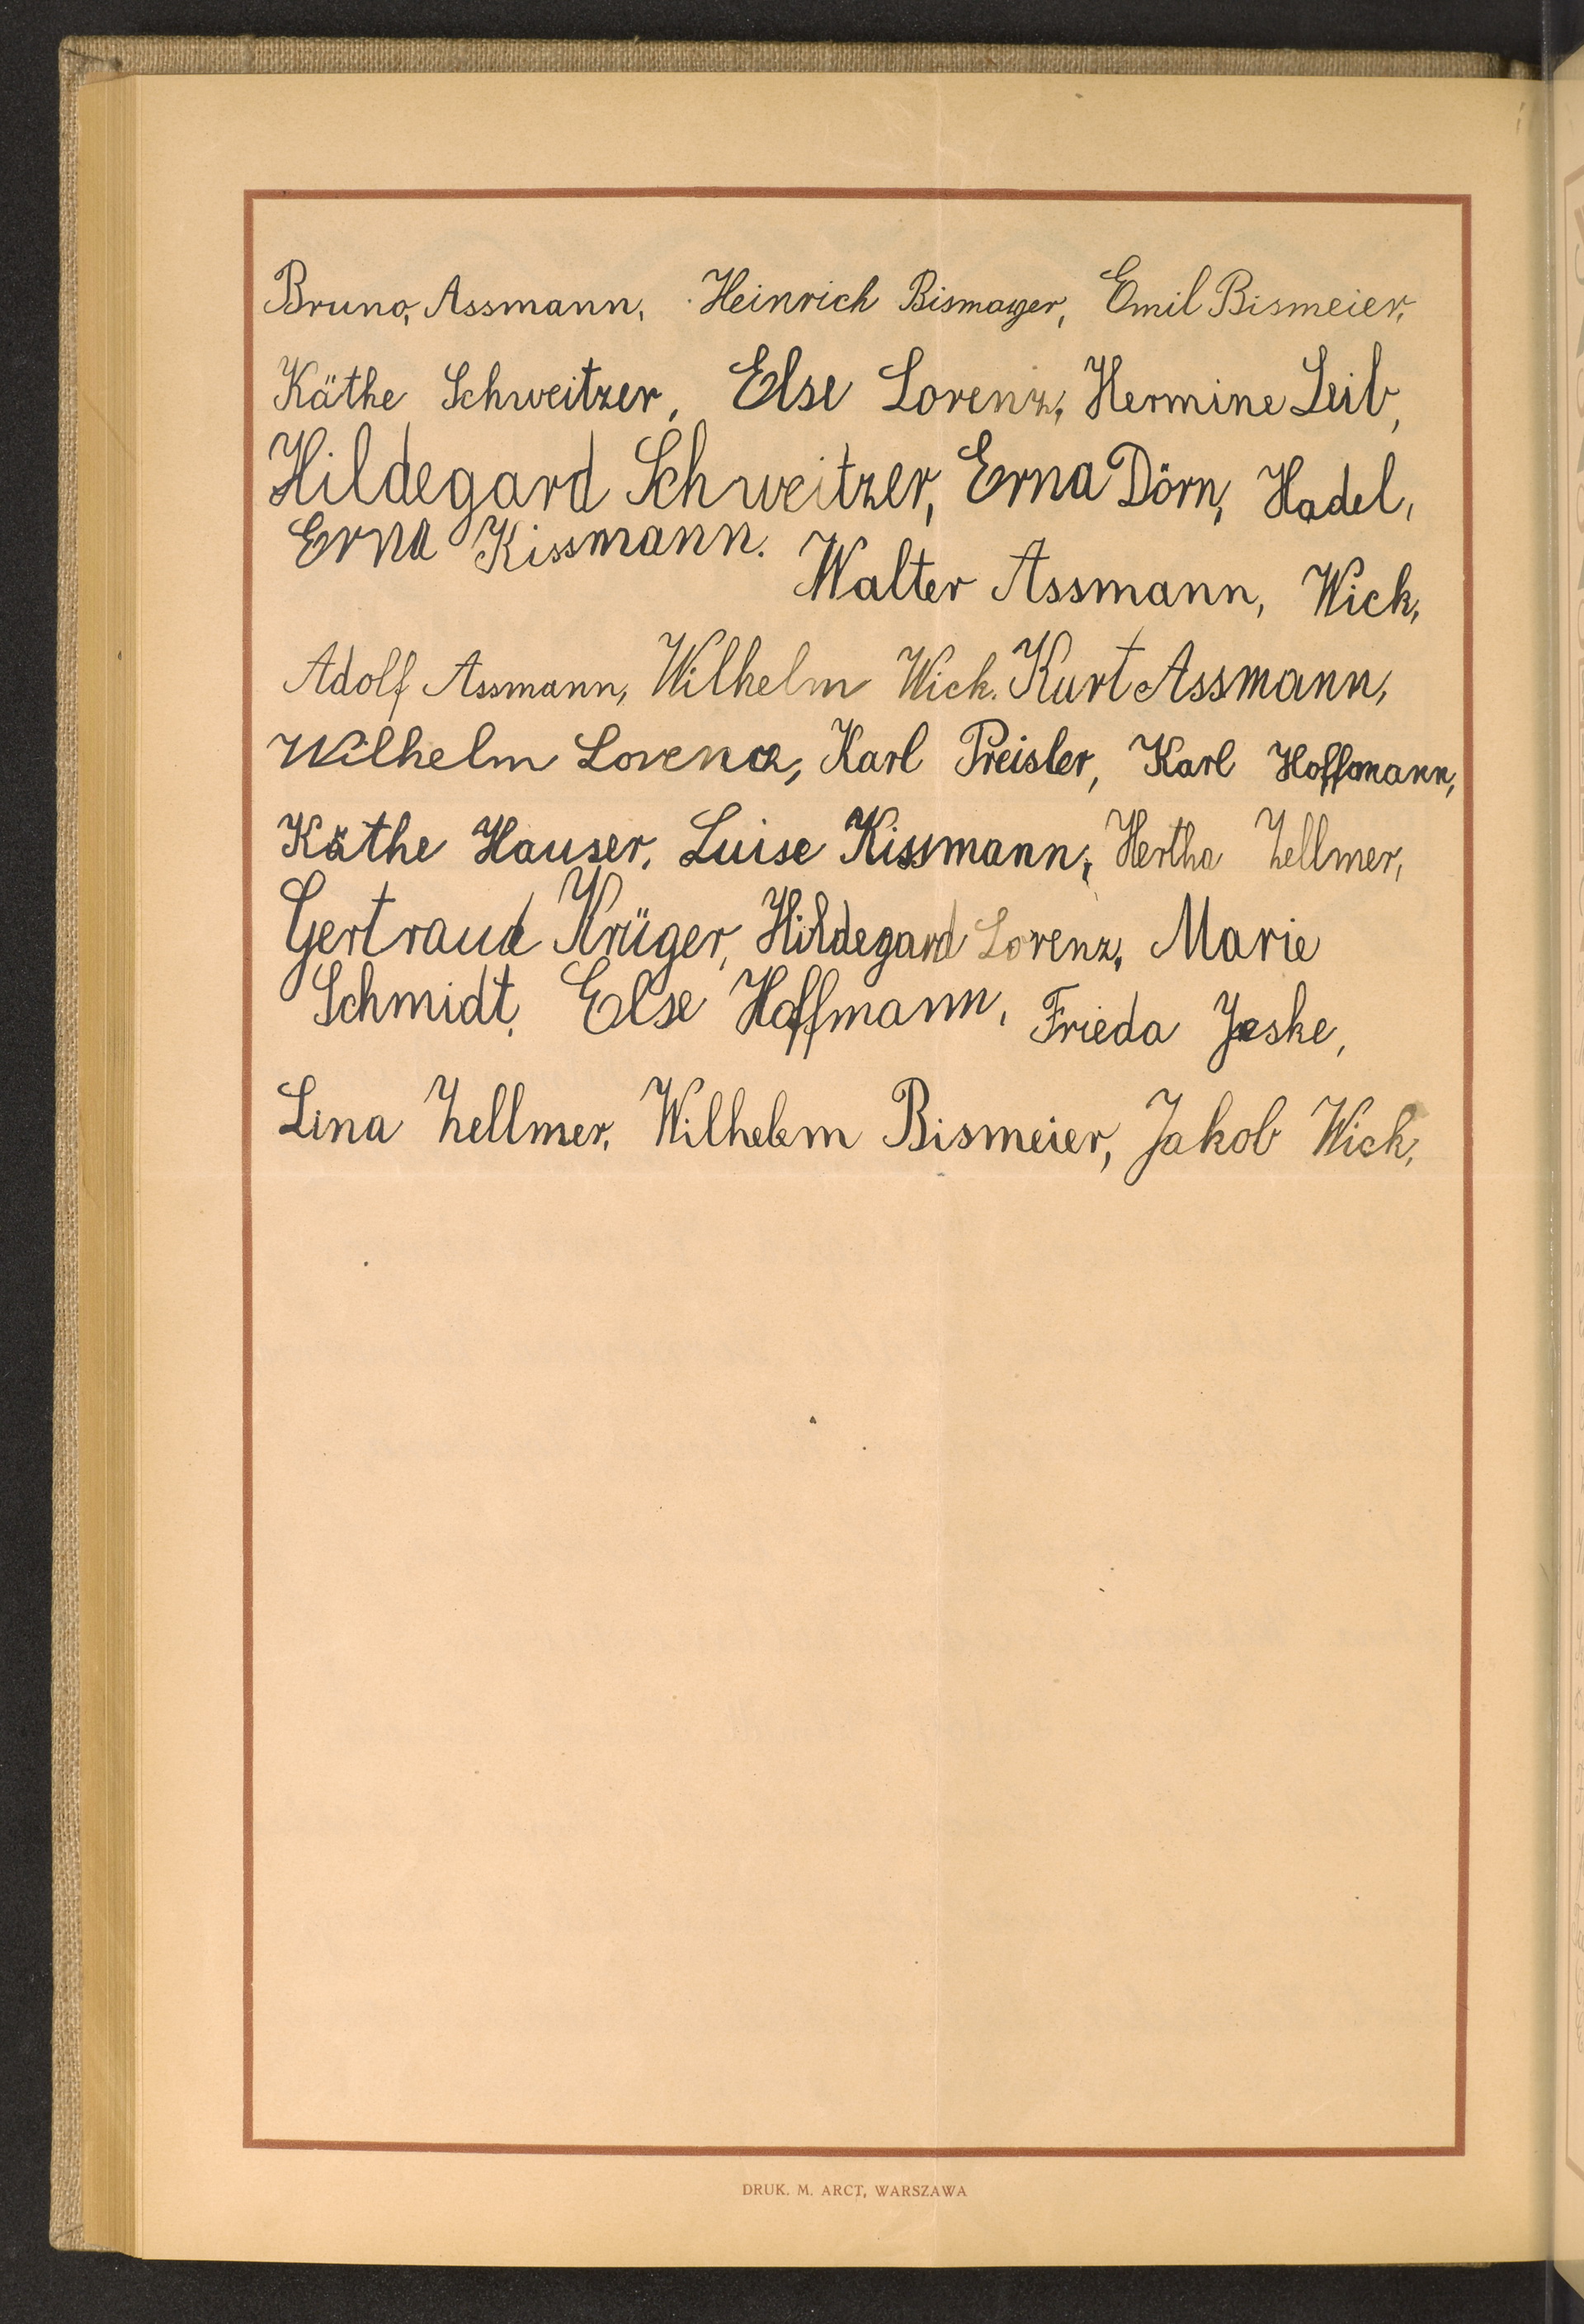 Bruno, Assmann, Heinrich Bismayer, Emil Bismeier,
Käthe Schweitzer, Else Lorenz, Hermine Leib,
Hildegard Schweitzer, Erna Dörn, Hadel,
Erna Kissmann. Walter Assmann, Wick,
Adolf Assmann, Wilhelm Wick. Kurt Assmann,
Wilhelm Lorenz, Karl Preisler, Karl Hoffmann,
Käthe Hauser, Luise Kissmann, Hertha Zellmer,
Gertraud Krüger, Hildegard Lorenz, Marie
Schmidt, Else Hoffmann, Frieda Jeske,
Lina Zellmer, Wilhelem Bismeier, Jakob Wick,
DRUK. M. ARCT, WARSZAWA